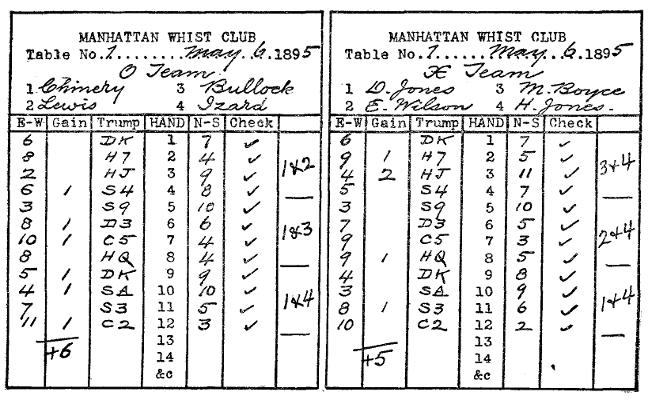 MANHATTAN WHIST CLUB
Table No. 7........May 6 1895
O Team
1 Chinery 3 Bullock
2 Lewis 4 Izard
E-W Gain Trump HAND N-S Check
6 DK 1 7 ✓
8 H7 2 4 ✓
2 HJ 3 9 ✓ 1&2
6 1 S4 4 8 ✓
3 S9 5 10 ✓
8 1 D3 6 6 ✓
10 1 C5 7 4 ✓ 1&3
8 HQ 8 4 ✓
5 1 DK 9 9 ✓
4 1 SA 10 10 ✓
7 S3 11 5 ✓ 1&4
11 1 C2 12 3 ✓
+6 13
14
&c
MANHATTAN WHIST CLUB
Table No. 7........May 6 1895
X Team
1 D. Jones 3 M. Boyce
2 E. Wilson 4 H. Jones.
E-W Gain Trump HAND N-S Check
6 DK 1 7 ✓
9 1 H7 2 5 ✓
4 2 HJ 3 11 ✓ 3&4
5 S4 4 7 ✓
3 S9 5 10 ✓
7 D3 6 5 ✓
9 C5 7 3 ✓ 2&4
9 1 HQ 8 5 ✓
4 DK 9 8 ✓
3 SA 10 9 ✓
8 1 S3 11 6 ✓ 1&4
10 C2 12 2 ✓
+5 13
14
&c